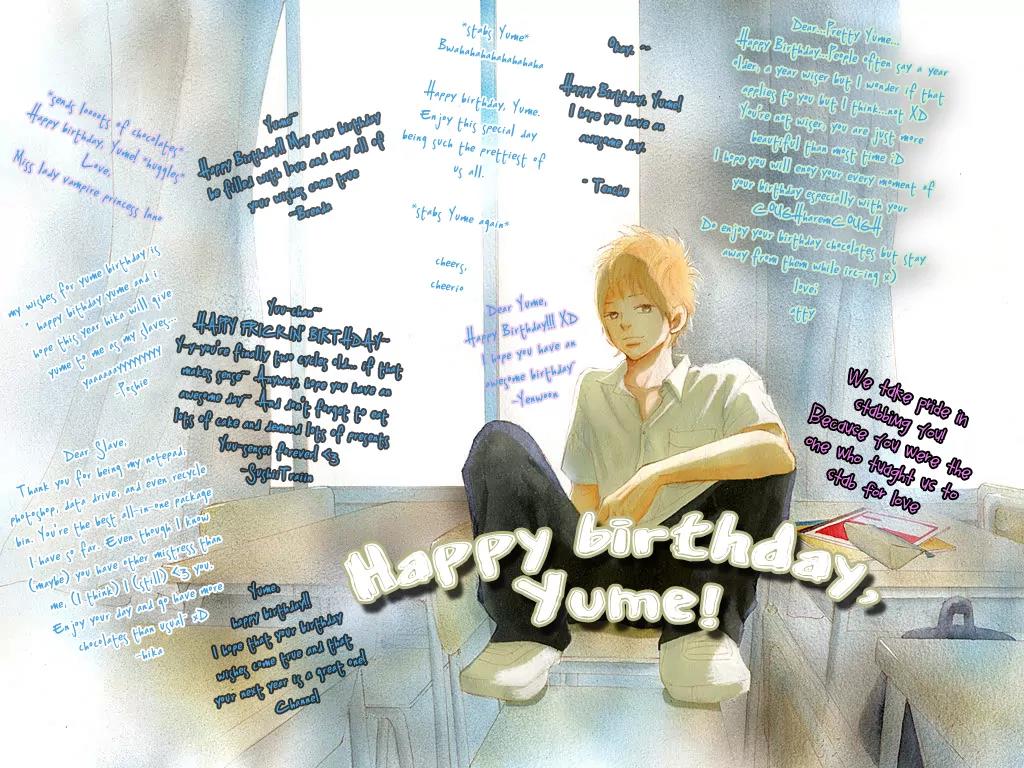 *sends looots of chocolates*
Happy birthday, Yume! *huggles*
Love,
Miss lady vampire princess Inna
Yume~
Happy Birthday!! May your birthday
be filled with love and may all of
your wishes come true
~Brenda
*stabs Yume*
Bwahahahahahahahaha
Happy birthday, Yume.
Enjoy this special day
being such the prettiest of
us all.
*stabs Yume again*
cheers,
cheerio
Okay. ~
Happy Birthday, Yume!
I hope you have an
awesome day.
- Tenshu
Dear...Pretty Yume...
Happy Birthday...People often say a year
older, a year wiser but I wonder if that
applies to you but I think...not XD
You're not wiser, you are just more
beautiful than most time :D
I hope you will enoy your every moment of
your birthday especially with your
COUGHharemCOUGH
Do enjoy your birthday chocolates but stay
away from them while irc-ing x)
love;
*tty
my wishes for yume birthday is
" happy bithday yume and i
hope this year hika will give
yume to me as my slaves~~
yaaaaayyyyyyyy
-Poshie
You-chan~~
HAPPY FRICKIN' BIRTHDAY~
Y-y-you're finally two cycles old... if that
makes sense~ Anyway, hope you have an
awesome day~ And don't forget to eat
lots of cake and demand lots of presents
Yuu-sensei forever! <3
~SushiiTraiin
Dear Yume,
Happy Birthday!!! XD
I hope you have an
awesome birthday~
~Yenwoon
We take pride in
stabbing you!
Because you were the
one who tught us to
stab for love
Dear Slave,
Thank you for being my notepad,
photoshop, data drive, and even recycle
bin. You're the best all-in-one package
I have so far. Even though I know
(maybe) you have other mistress than
me, (I think) I (still) <3 you.
Enjoy your day and go have more
chocolates than usual xD
-hika
Yume,
happy birthday!!
I hope that your birthday
wishes come true and that
your next year is a great one!
Channel
Happy birthday,
Yume!